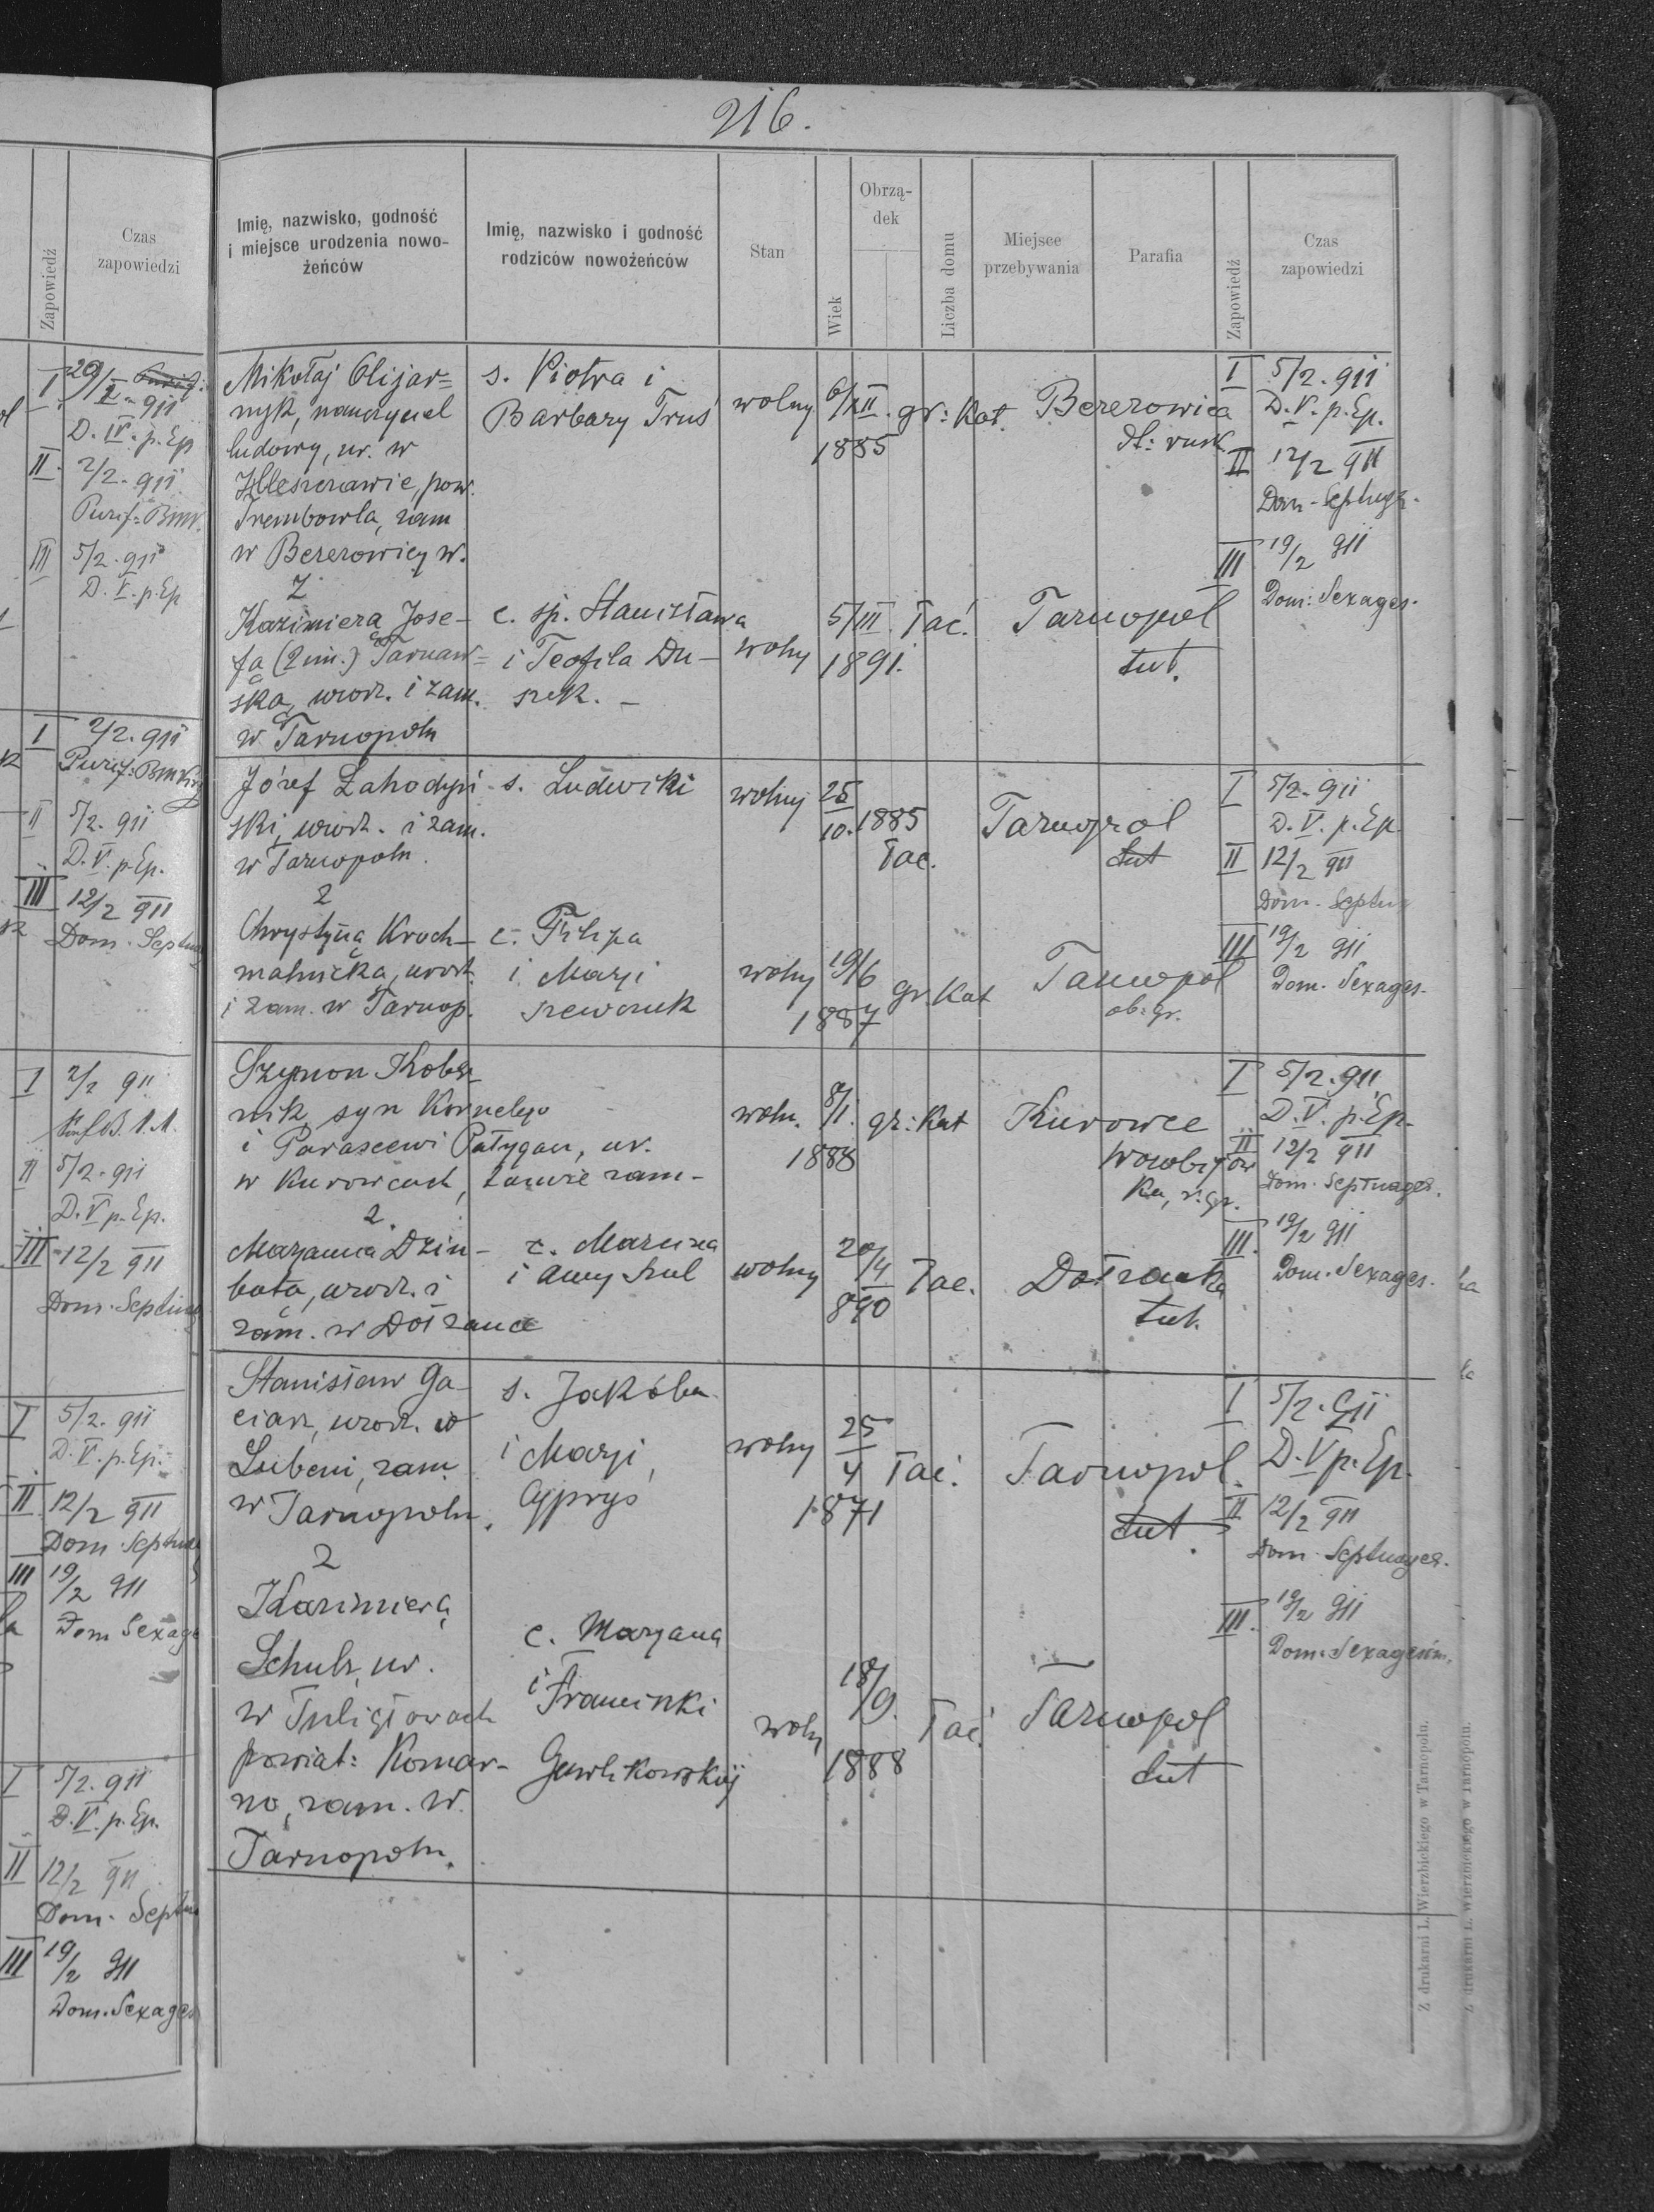 216.
Imię, nazwisko, godność
i miejsce urodzenia nowo-
żeńców
Imię, nazwisko i godność
rodziców nowożeńców
Stan
Wiek
Obrzą-
dek
Liczba domu
Miejsce
przebywania
Parafia
Zapowiedź
Czas
zapowiedzi
Mikołaj Olijar=
nyk, nauczyciel
ludowy, ur. w
pow.
Trembowla, zam
w Berezowicy w.
s. Piotra i
Barbary Truś
wolny
6/XII.
1885
gr: kat.
Berezowica
dt: rusk
I 5/2. 911
D. V. p. Ep.
II 12/2 911
Dom. Septuag.
III 19/2 911
Dom: Sexages.
Z
Kazimiera Jose-
fa (2 im.) Tarnaw=
ska, urodz. i zam.
w Tarnopolu
c. śp. Stanisława
i Teofila Du-
szek. -
wolny
5/III.
1891.
łać.
Tarnopol
tut.
Józef Zahodyń-
ski, urodz. i zam.
w Tarnopolu.
s. Ludwiki
wolny
25
10. 1885
łac.
Tarnopol
tut
I 5/2. 911
D. V. p. Ep.
II 12/2 911
Dom. Septuag
III 19/2 911
Dom. Sexages.
Z
Chrystyna Kroch-
malnicka, urodz.
i zam. w Tarnop.
c. Filipa
i Maryi
Szewczuk
wolny
19/6
1887
gr. kat
Tarnopol
ob: gr.
Szymon Kobel
nik, syn Kornelego
i Parascewi Patygan, ur.
w Kurowcach, zam-
woln.
8/I.
1888
gr: kat
Kurowce
ka, r. gr.
I 5/2. 911
D. V. p. Ep.
II 12/2 911
Dom. Septuages.
III. 19/2 911
Dom. Sexages.
Z.
Maryanna Dziu-
bata, urodz. i
zam. w Dołżance
c. Marcina
i Anny Szul
wolny
20/4
890
łac.
Dołżanka
tut.
Stanisław Ga-
ciarz, urodz. w
Lubeni, zam.
w Tarnopolu.
s. Jakóba
i Maryi
Cypryś
wolny
25
4
1871
łać.
Tarnopol.
tut.
I 5/2. 911
D. V p. Ep.
II 12/2 911
Dom. Septuages.
III. 19/2 911
Dom. Sexagesim.
Z
Kazimiera
Schulz, ur.
w Tuligłowach
powiat: Komar-
no, zam. w
Tarnopolu.
c. Maryana
i Franciszki
Gawlikowskiej
woln
18/9.
1888
łać.
Tarnopol
tut
Z drukarni L. Wierzbickiego w Tarnopolu.
Z drukarni L. Wierzbickiego w Tarnopolu.
Zapowiedź
Czas
zapowiedzi
I 29/I 911
D. IV. p. Ep
II. 2/2. 911
Purif: BMV.
III 5/2. 911
D. V. p. Ep
I 2/2. 911
II 5/2. 911
D. V. p. Ep.
III 12/2 911
Dom. Septuag
I 2/2 911
II 5/2. 911
D. V p. Ep.
III 12/2 911
Dom. Septuag
I 5/2. 911
D. V. p. Ep.
II 12/2 911
Dom Septuag
III 19/2 911
Dom Sexage
I 5/2. 911
D. V. p. Ep.
II 12/2 911
Dom. Septu
III 19/2 911
Dom. Sexages